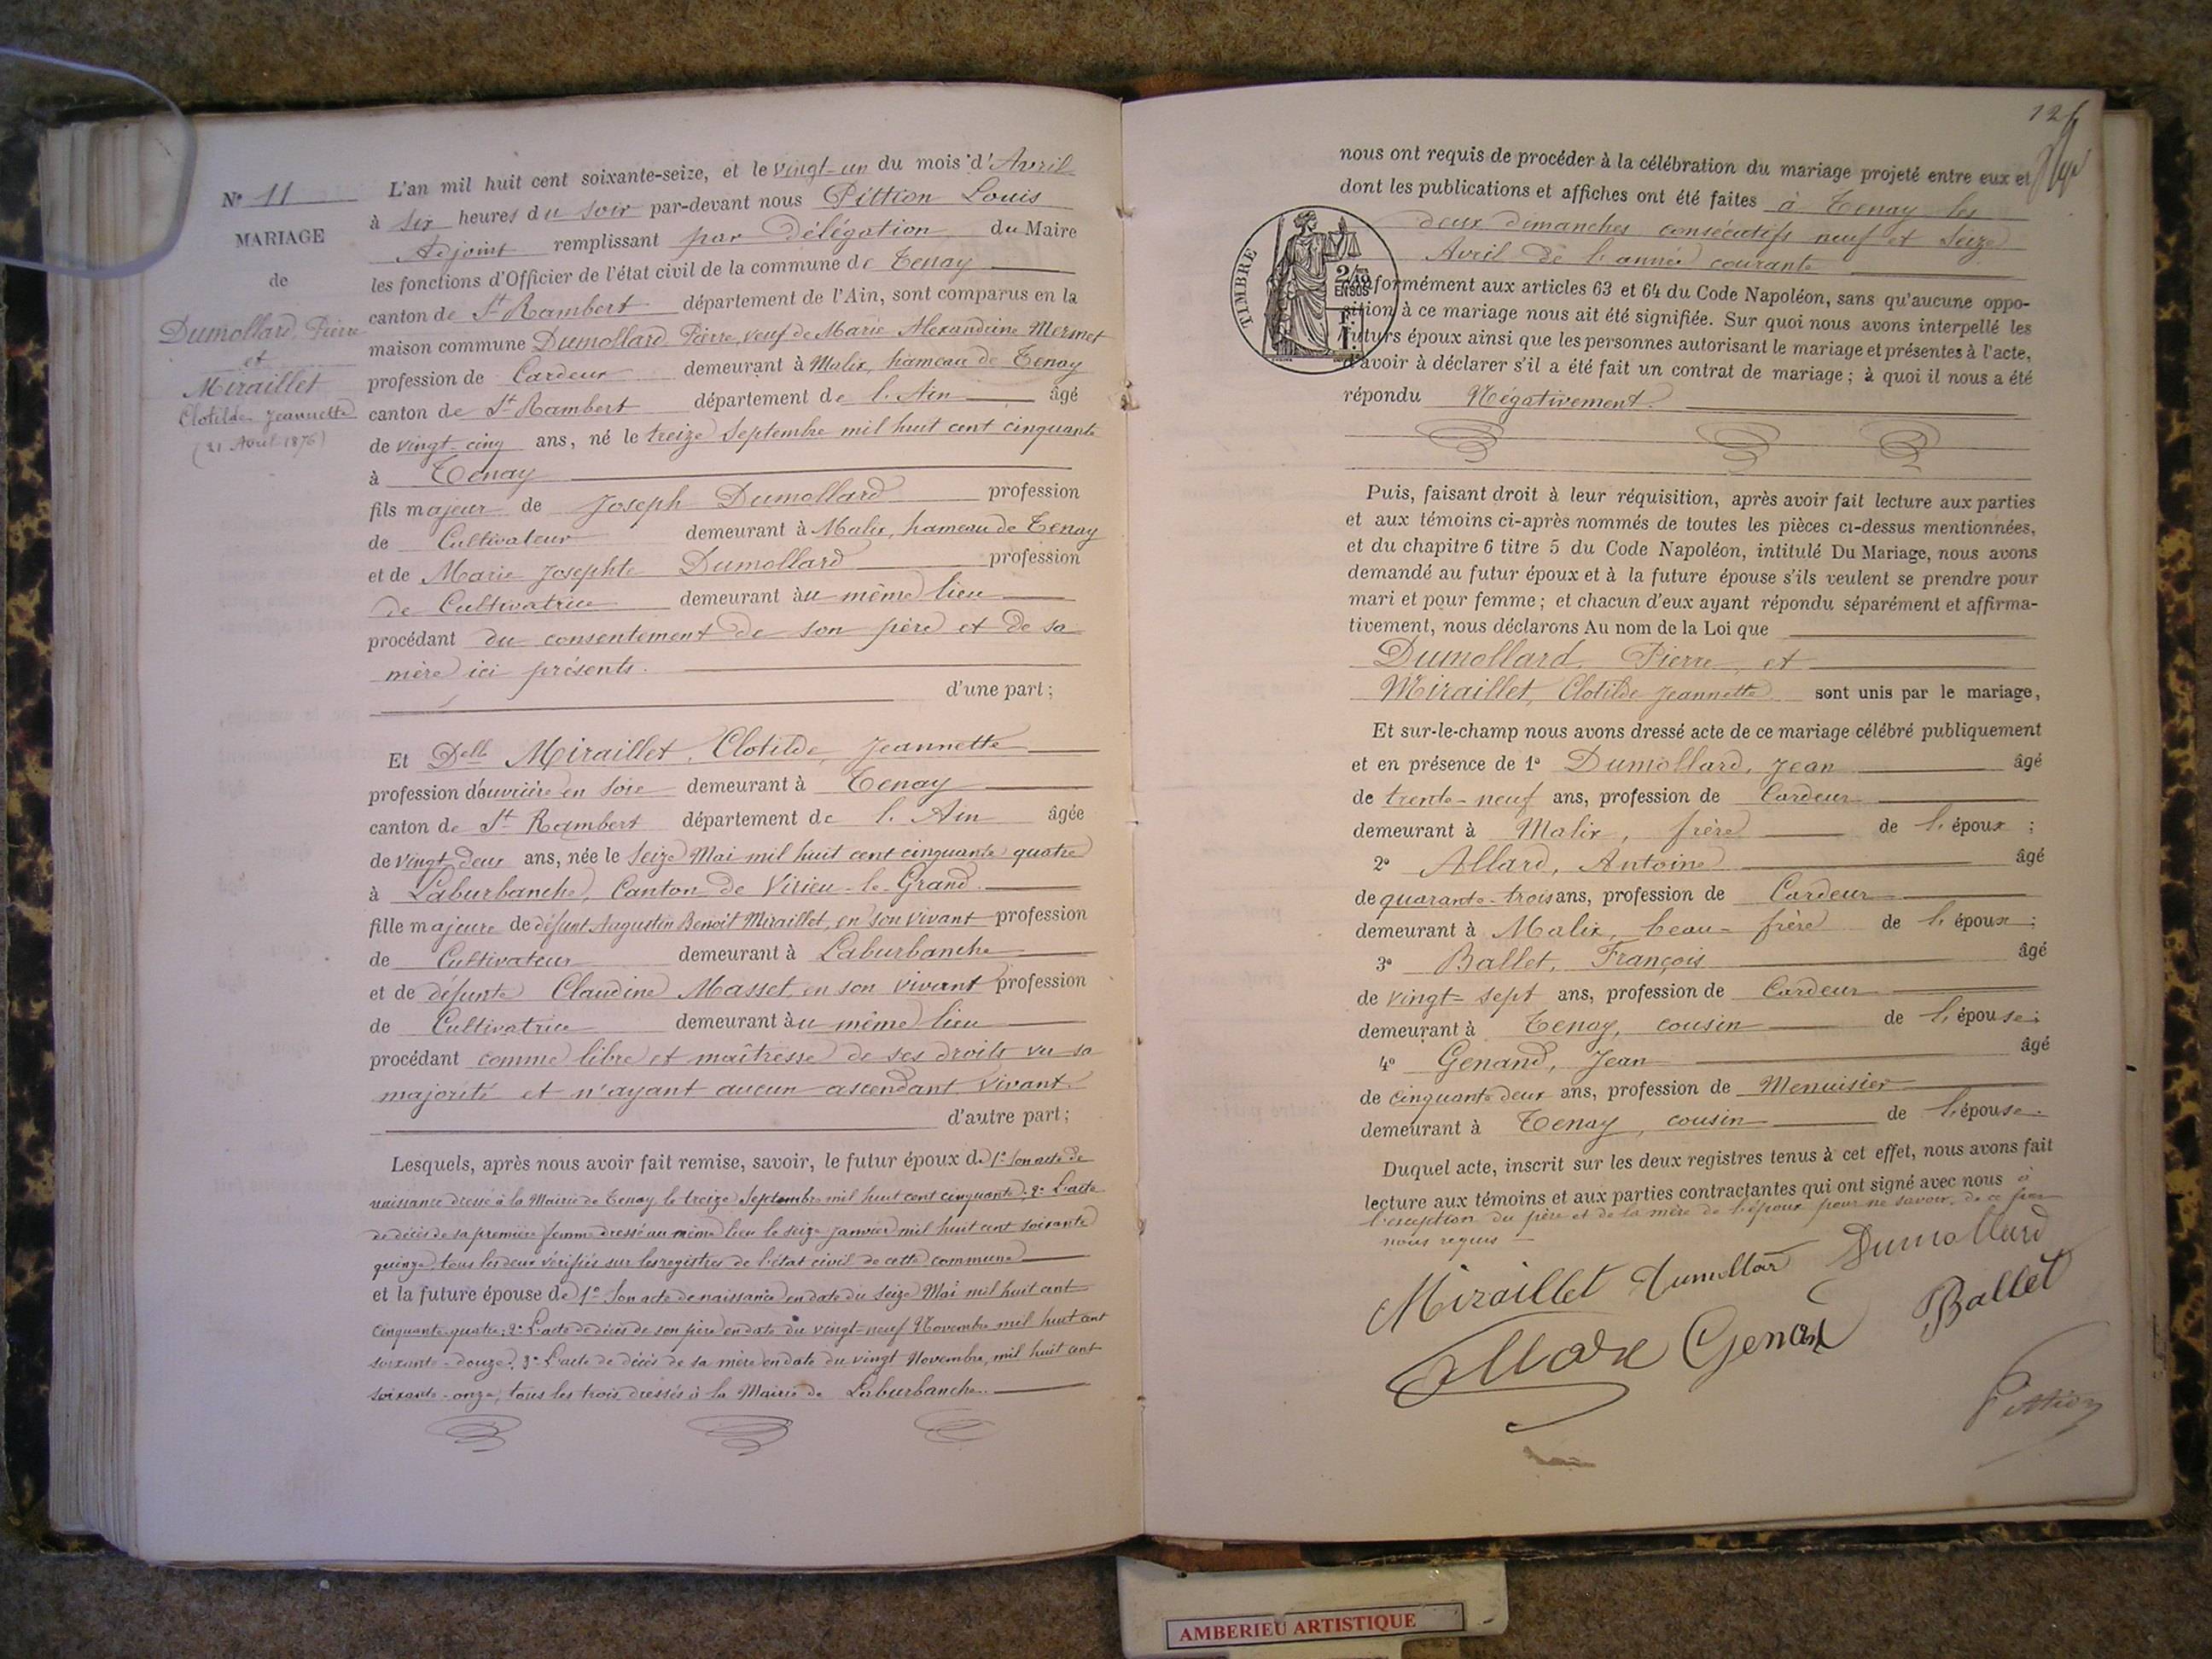 N° 11
MARIAGE
de
Dumollard, Pierre
et
Miraillet
Clotilde Jeannette
(21 Avril 1876)
L'an mil huit cent soixante-seize, et le vingt-un du mois d'Avril
à six heures du soir par-devant nous Pittion Louis
Adjoint remplissant par délégation du Maire
les fonctions d'Officier de l'état civil de la commune de Tenay
canton de St Rambert département de l'Ain, sont comparus en la
maison commune Dumollard Pierre, veuf de Marie Alexandrine Mermet
profession de Cardeur demeurant à Malix, hameau de Tenay
canton de St Rambert département de l'Ain âgé
de vingt-cinq ans, né le treize Septembre mil huit cent cinquante
à Tenay
fils majeur de Joseph Dumollard profession
de Cultivateur demeurant à Malix, hameau de Tenay
et de Marie Josephte Dumollard profession
de Cultivatrice demeurant àu même lieu
procédant du consentement de son père et de sa
mère ici présents.
d'une part;
Et Delle Miraillet, Clotilde, Jeannette
profession d'ouvrière en soie demeurant à Tenay
canton de St Rambert département de l'Ain âgée
de vingt-deux ans, née le Seize Mai mil huit cent cinquante quatre
à Laburbanche, Canton de Virieu-le-Grand.
fille majeure de défunt Augustin Benoit Miraillet, en son vivant profession
de Cultivateur demeurant à Laburbanche
et de défunte Claudine Masset, en son vivant profession
de Cultivatrice demeurant àu même lieu
procédant comme libre et maîtresse de ses droits vu sa
majorité et n'ayant aucun ascendant vivant.
d'autre part;
Lesquels, après nous avoir fait remise, savoir, le futur époux de 1° Son acte de
naissance dressé à la Mairie de Tenay le treize Septembre mil huit cent cinquante; 2° L'acte
de décès de sa première femme dressé au même lieu le Seize Janvier mil huit cent soixante
quinze, tous les deux vérifiés sur les registres de l'état civil de cette commune
et la future épouse de 1° Son acte de naissance en date du Seize Mai mil huit cent
cinquante-quatre; 2° L'acte de décès de son père en date du vingt-neuf Novembre mil huit cent
soixante-douze; 3° L'acte de décès de sa mère en date du vingt Novembre, mil huit cent
soixante-onze, tous les trois dressés à la Mairie de Laburbanche.
nous ont requis de procéder à la célébration du mariage projeté entre eux et
dont les publications et affiches ont été faites à Tenay les
deux dimanches consécutifs neuf et Seize
Avril de l'année courante
TIMBRE
2/10
EN SUS
formément aux articles 63 et 64 du Code Napoléon, sans qu'aucune oppo-
sition à ce mariage nous ait été signifiée. Sur quoi nous avons interpellé les
futurs époux ainsi que les personnes autorisant le mariage et présentes à l'acte,
d'avoir à déclarer s'il a été fait un contrat de mariage; à quoi il nous a été
répondu Négativement.
Puis, faisant droit à leur réquisition, après avoir fait lecture aux parties
et aux témoins ci-après nommés de toutes les pièces ci-dessus mentionnées,
et du chapitre 6 titre 5 du Code Napoléon, intitulé Du Mariage, nous avons
demandé au futur époux et à la future épouse s'ils veulent se prendre pour
mari et pour femme; et chacun d'eux ayant répondu séparément et affirma-
tivement, nous déclarons Au nom de la Loi que
Dumollard, Pierre, et
Miraillet, Clotilde Jeannette sont unis par le mariage,
Et sur-le-champ nous avons dressé acte de ce mariage célébré publiquement
et en présence de 1° Dumollard, Jean âgé
de trente-neuf ans, profession de Cardeur
demeurant à Malix, frère de l'époux;
2° Allard, Antoine âgé
de quarante-trois ans, profession de Cardeur
demeurant à Malix, beau-frère de l'époux;
3° Ballet, François âgé
de vingt-sept ans, profession de Cardeur
demeurant à Tenay, cousin de l'épouse;
4° Genand, Jean âgé
de cinquante-deux ans, profession de Menuisier
demeurant à Tenay, cousin de l'épouse.
Duquel acte, inscrit sur les deux registres tenus à cet effet, nous avons fait
lecture aux témoins et aux parties contractantes qui ont signé avec nous à
l'exception du père et de la mère de l'époux pour ne savoir, de ce par
nous requis
Miraillet Dumollar Dumollard
Genand Ballet
Pittion
AMBERIEU ARTISTIQUE